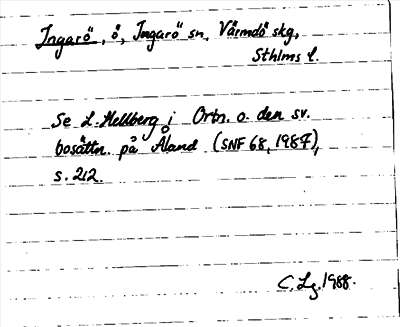 Ingarö, ö, Ingarö sn, Värmdö skg,
Sthlms l.
Se L. Hellberg i Ortn. o. den sv.
bosättn. på Åland (SNF 68, 1987),
s. 212.
C. Lg. 1988.